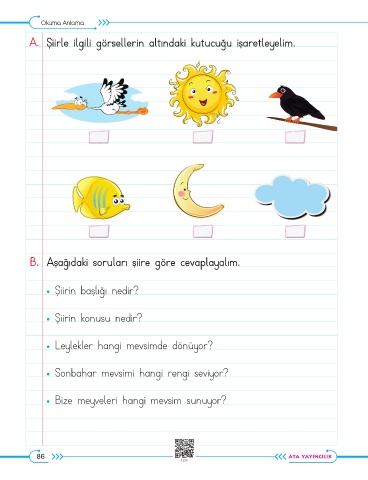 Okuma Anlama
A. Şiirle ilgili görsellerin altındaki kutucuğu işaretleyelim.
B. Aşağıdaki soruları şiire göre cevaplayalım.
• Şiirin başlığı nedir?
• Şiirin konusu nedir?
• Leylekler hangi mevsimde dönüyor?
• Sonbahar mevsimi hangi rengi seviyor?
• Bize meyveleri hangi mevsim sunuyor?
86
ATA YAYINCILIK